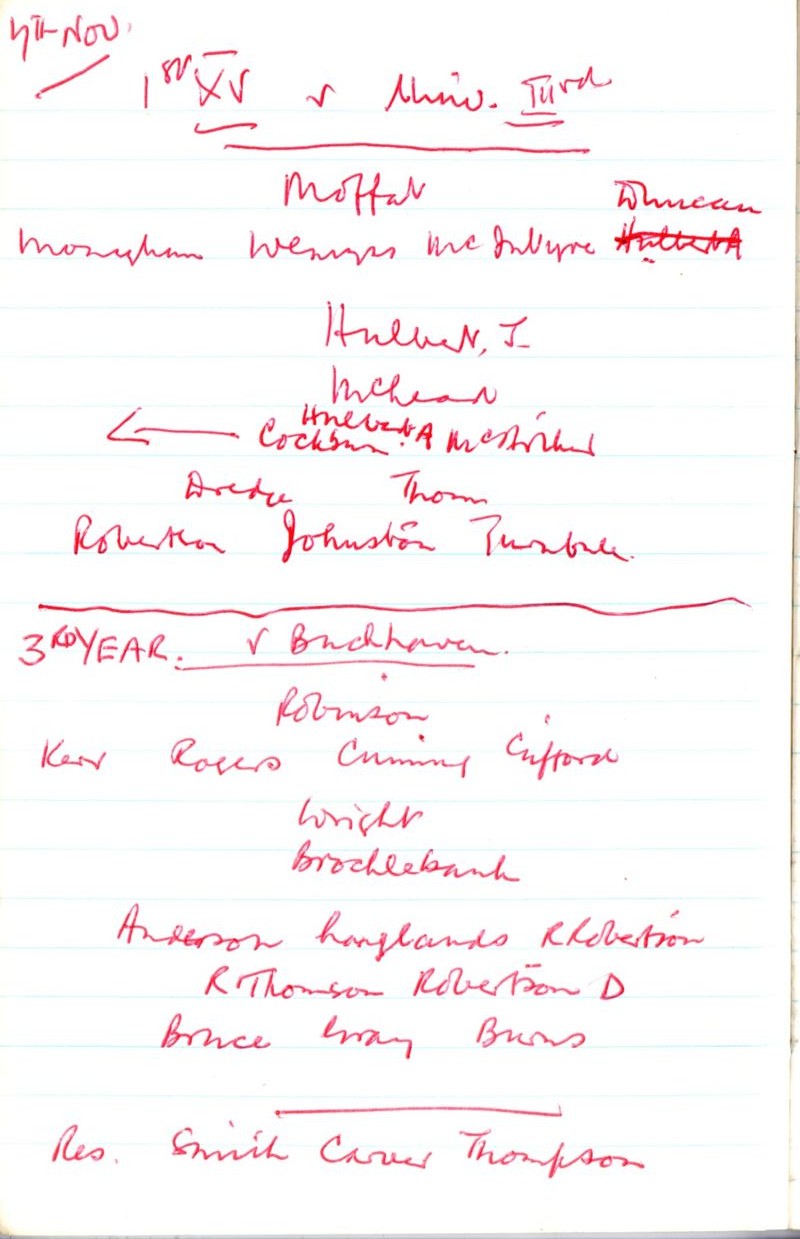 4TH NOV.
1ST XV v Univ. IIIrd
Moffat
Duncan
Monaghan Wemyss McIntyre Hulbert A
Hulbert, J
McLean
Hulbert A
Cockburn
Thom
Robertson Johnston Turnbull.
3RD YEAR. v Buckhaven.
Robinson
Kerr Rogers Cuming Gifford
Wright
Brocklebank
Anderson Langlands R Robertson
R Thomson Robertson D
Bruce Gray Burns
Res. Smith Carver Thompson